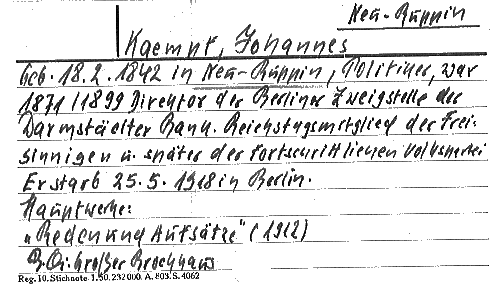 Neu-Ruppin
Kaempf, Johannes
Geb. 18.2.1842 in Neu-Ruppin, Politiker, war
1871/1899 Direktor der Berliner Zweigstelle der
Darmstädter Bank. Reichstagsmitglied der Frei-
sinnigen u. später der Fortschrittlichen Volkspartei
Er starb 25.5.1918 in Berlin.
Hauptwerke:
„Reden und Aufsätze" (1912)
B.Qu: Großer Brockhaus
Reg. 10. Stichnote. 1. 50. 232 000. A. 803. S. 4062